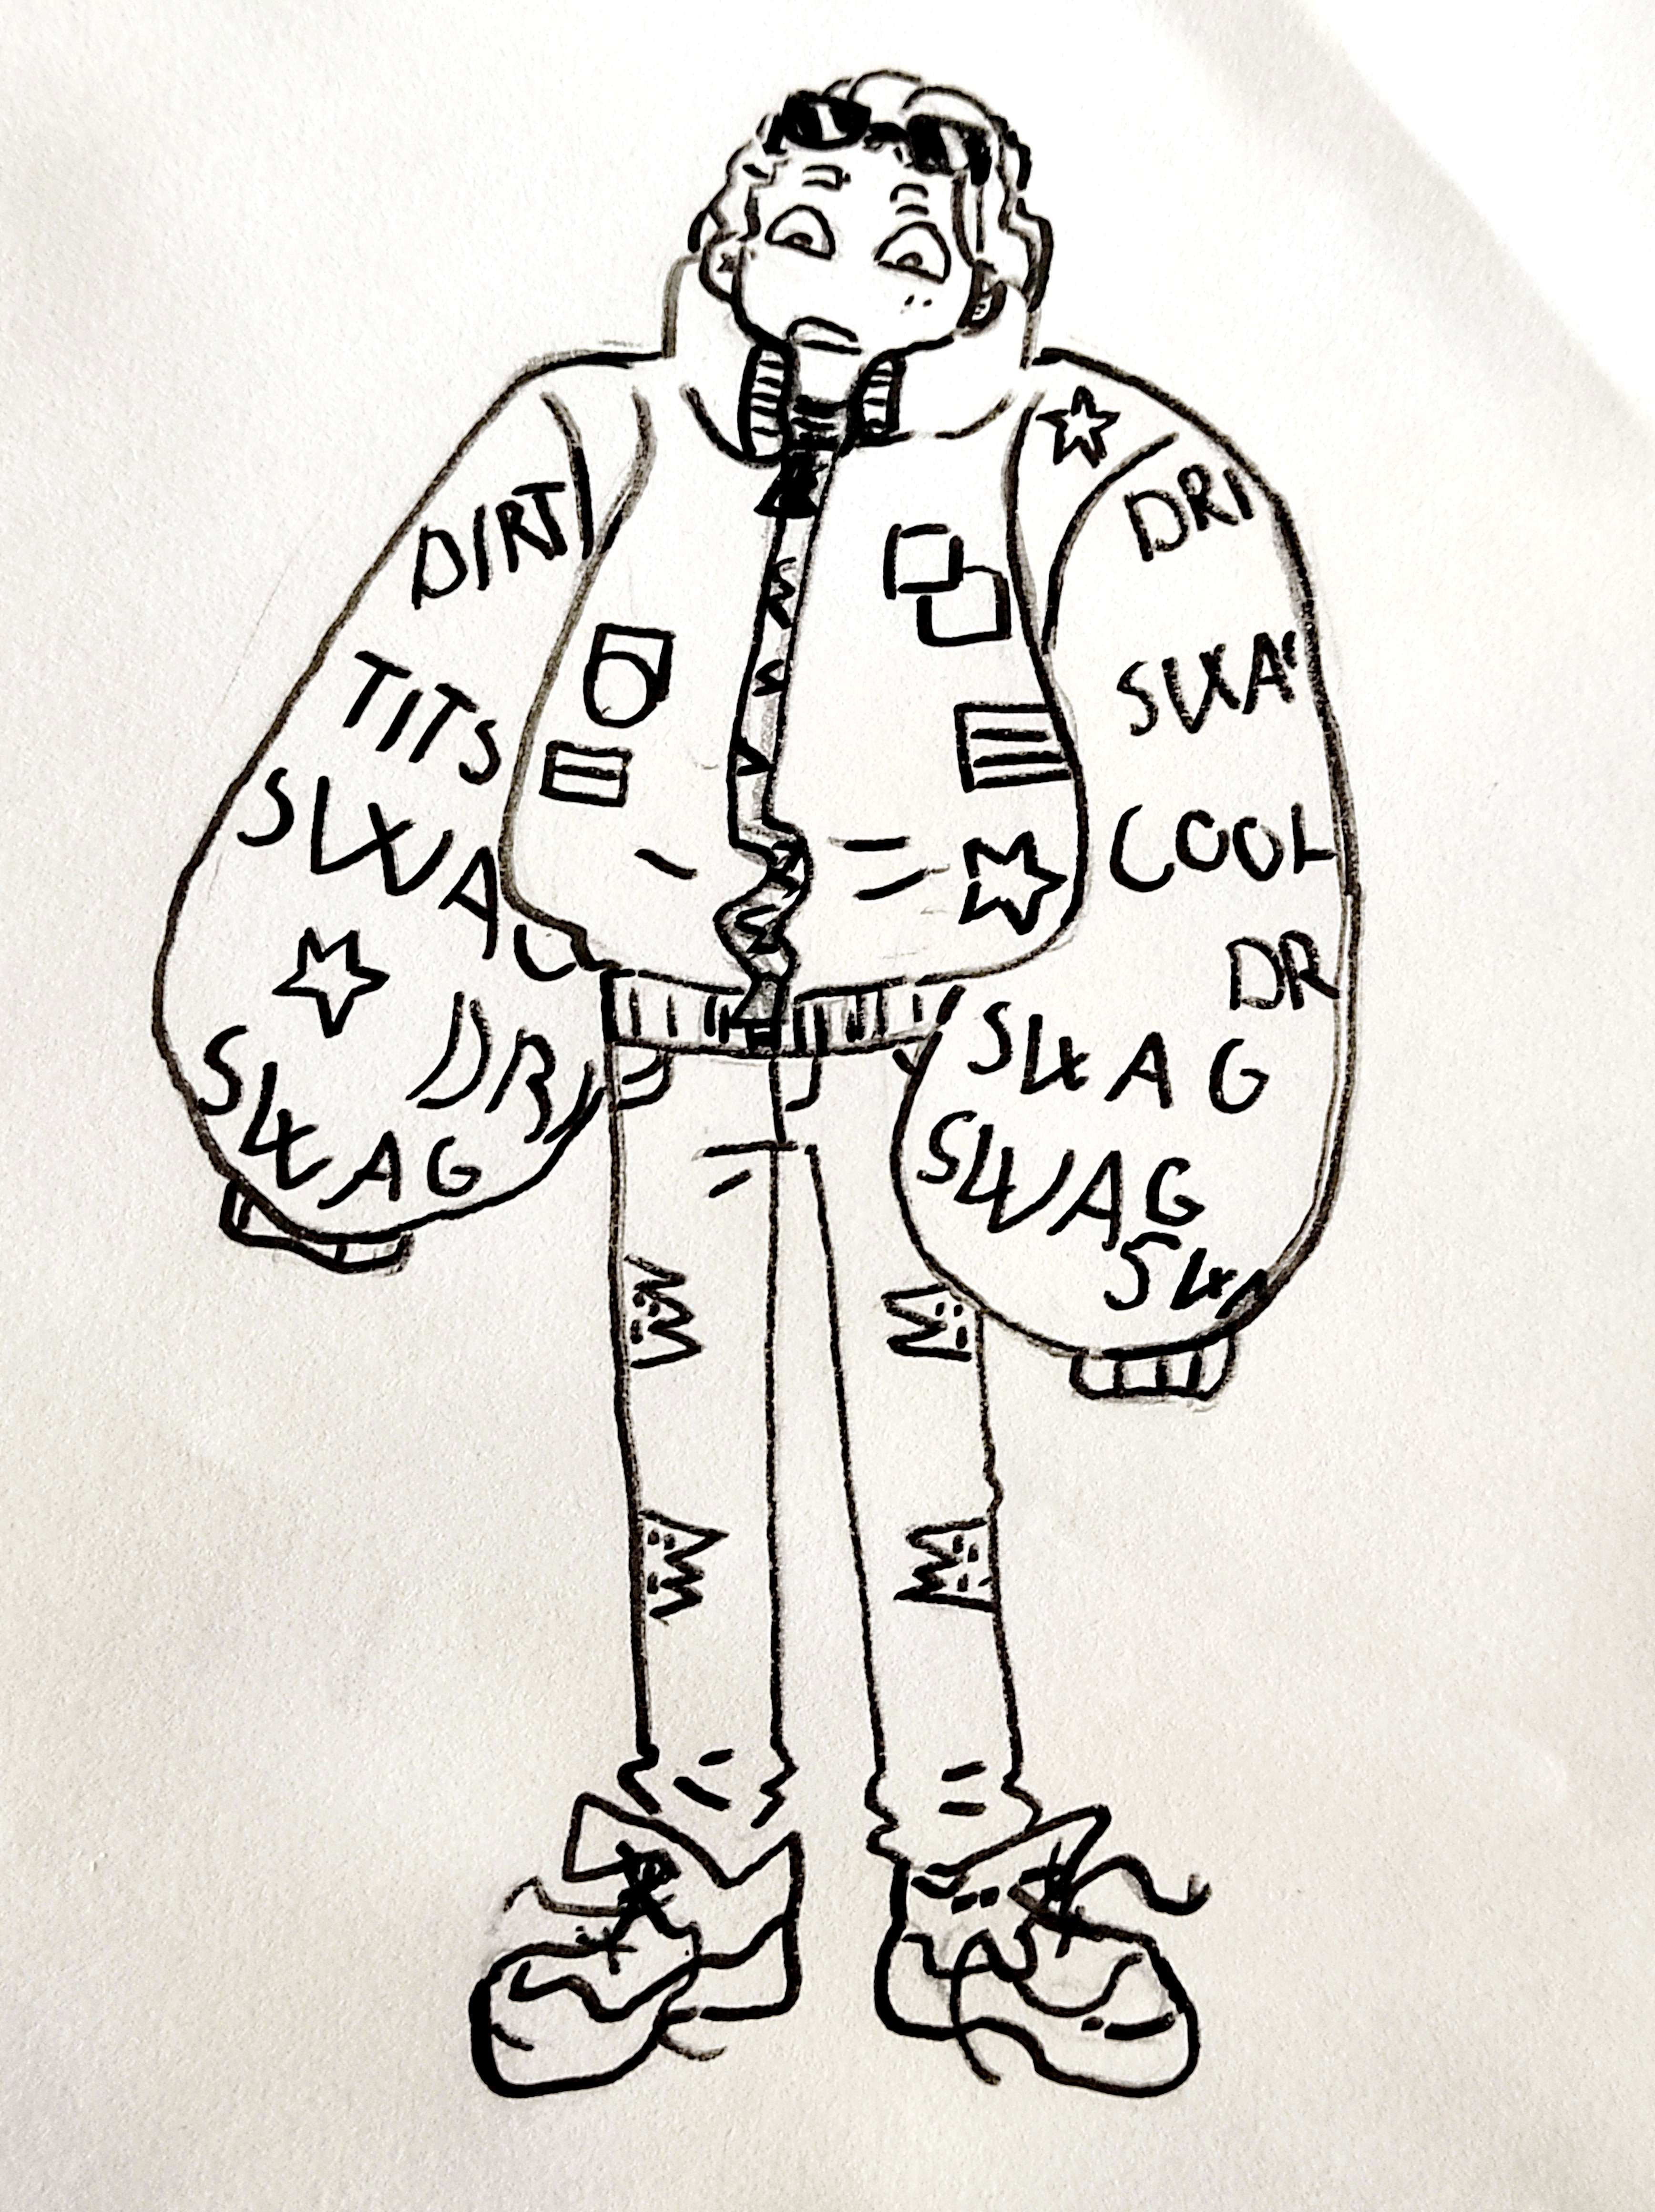 DIRT
TITS
SWAG
DRI
SWAG
DRI
SWA
COOL
DR
SWAG
SWAG
SWA